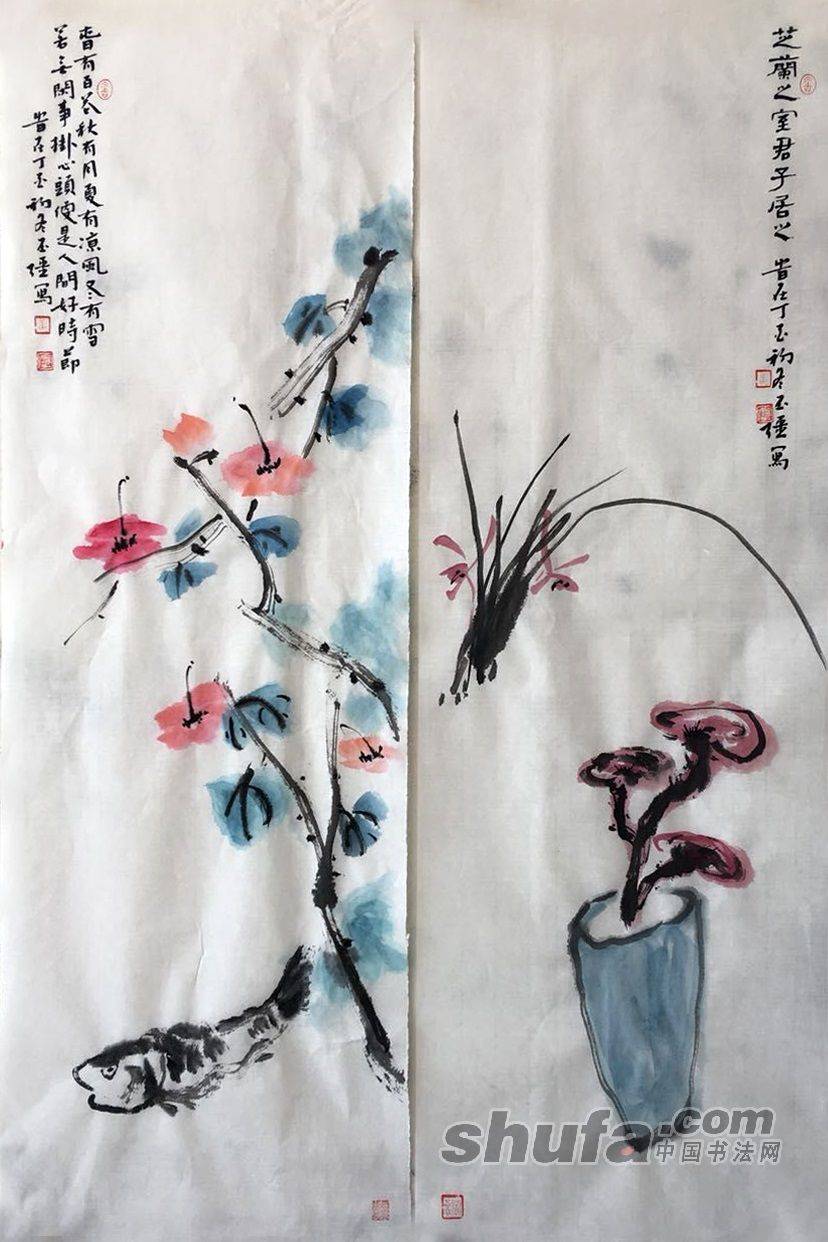 芝蘭之室君子居之
旹在丁酉初冬玉寫
春有百花秋有月夏有凉風冬有雪
若无閑事掛心頭便是人間好時節
旹在丁酉初冬玉寫
shufa.com
中国书法网